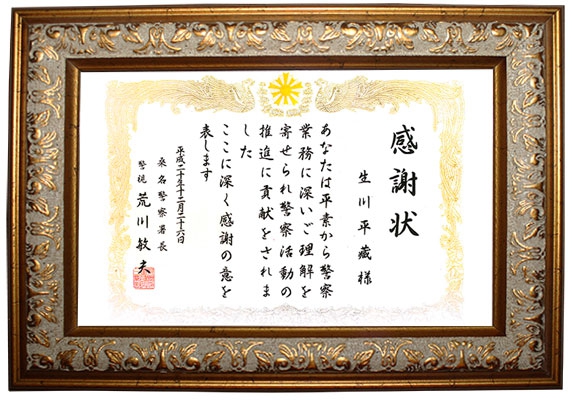 感謝状
生川平蔵様
あなたは平素から警察
業務に深いご理解を
寄せられ警察活動の
推進に貢献をされま
した
ここに深く感謝の意を
表します
平成二十年十二月二十六日
桑名警察署長
警視 荒川敏夫